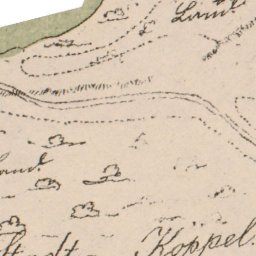 Land.
and.
Stadt Koppel.